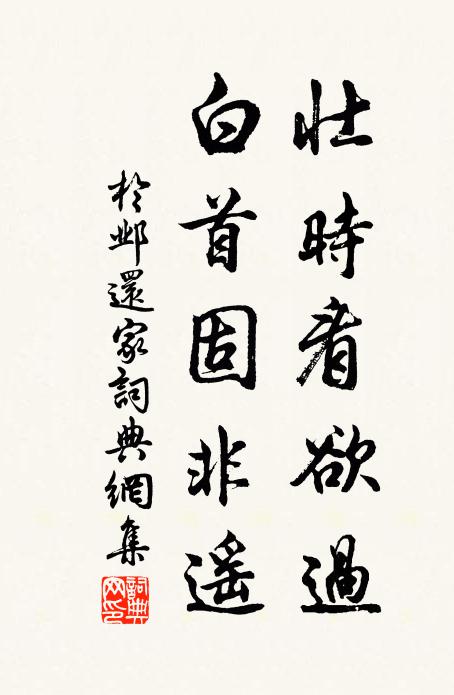 壮時看欲過
白首固非遥
於邺還家詞典網集
詞典网印